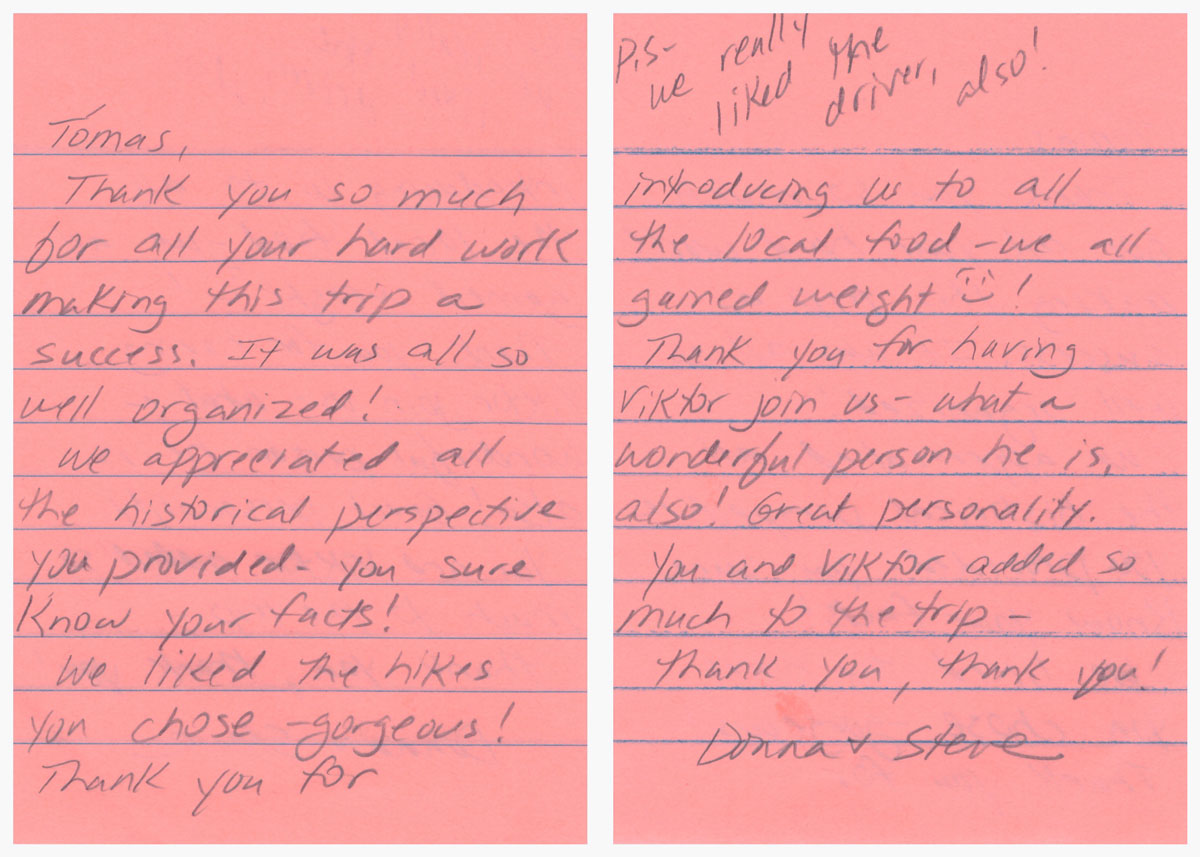 Tomas,
Thank you so much
for all your hard work
making this trip a
success. It was all so
well organized!
We appreciated all
the historical perspective
you provided - you sure
know your facts!
We liked the hikes
you chose - gorgeous!
Thank you for
P.S-
we really
liked the
driver, also!
introducing us to all
the local food - we all
gained weight !
Thank you for having
Viktor join us - what a
wonderful person he is,
also! Great personality.
You and Viktor added so
much to the trip -
thank you, thank you!
Donna & Steve